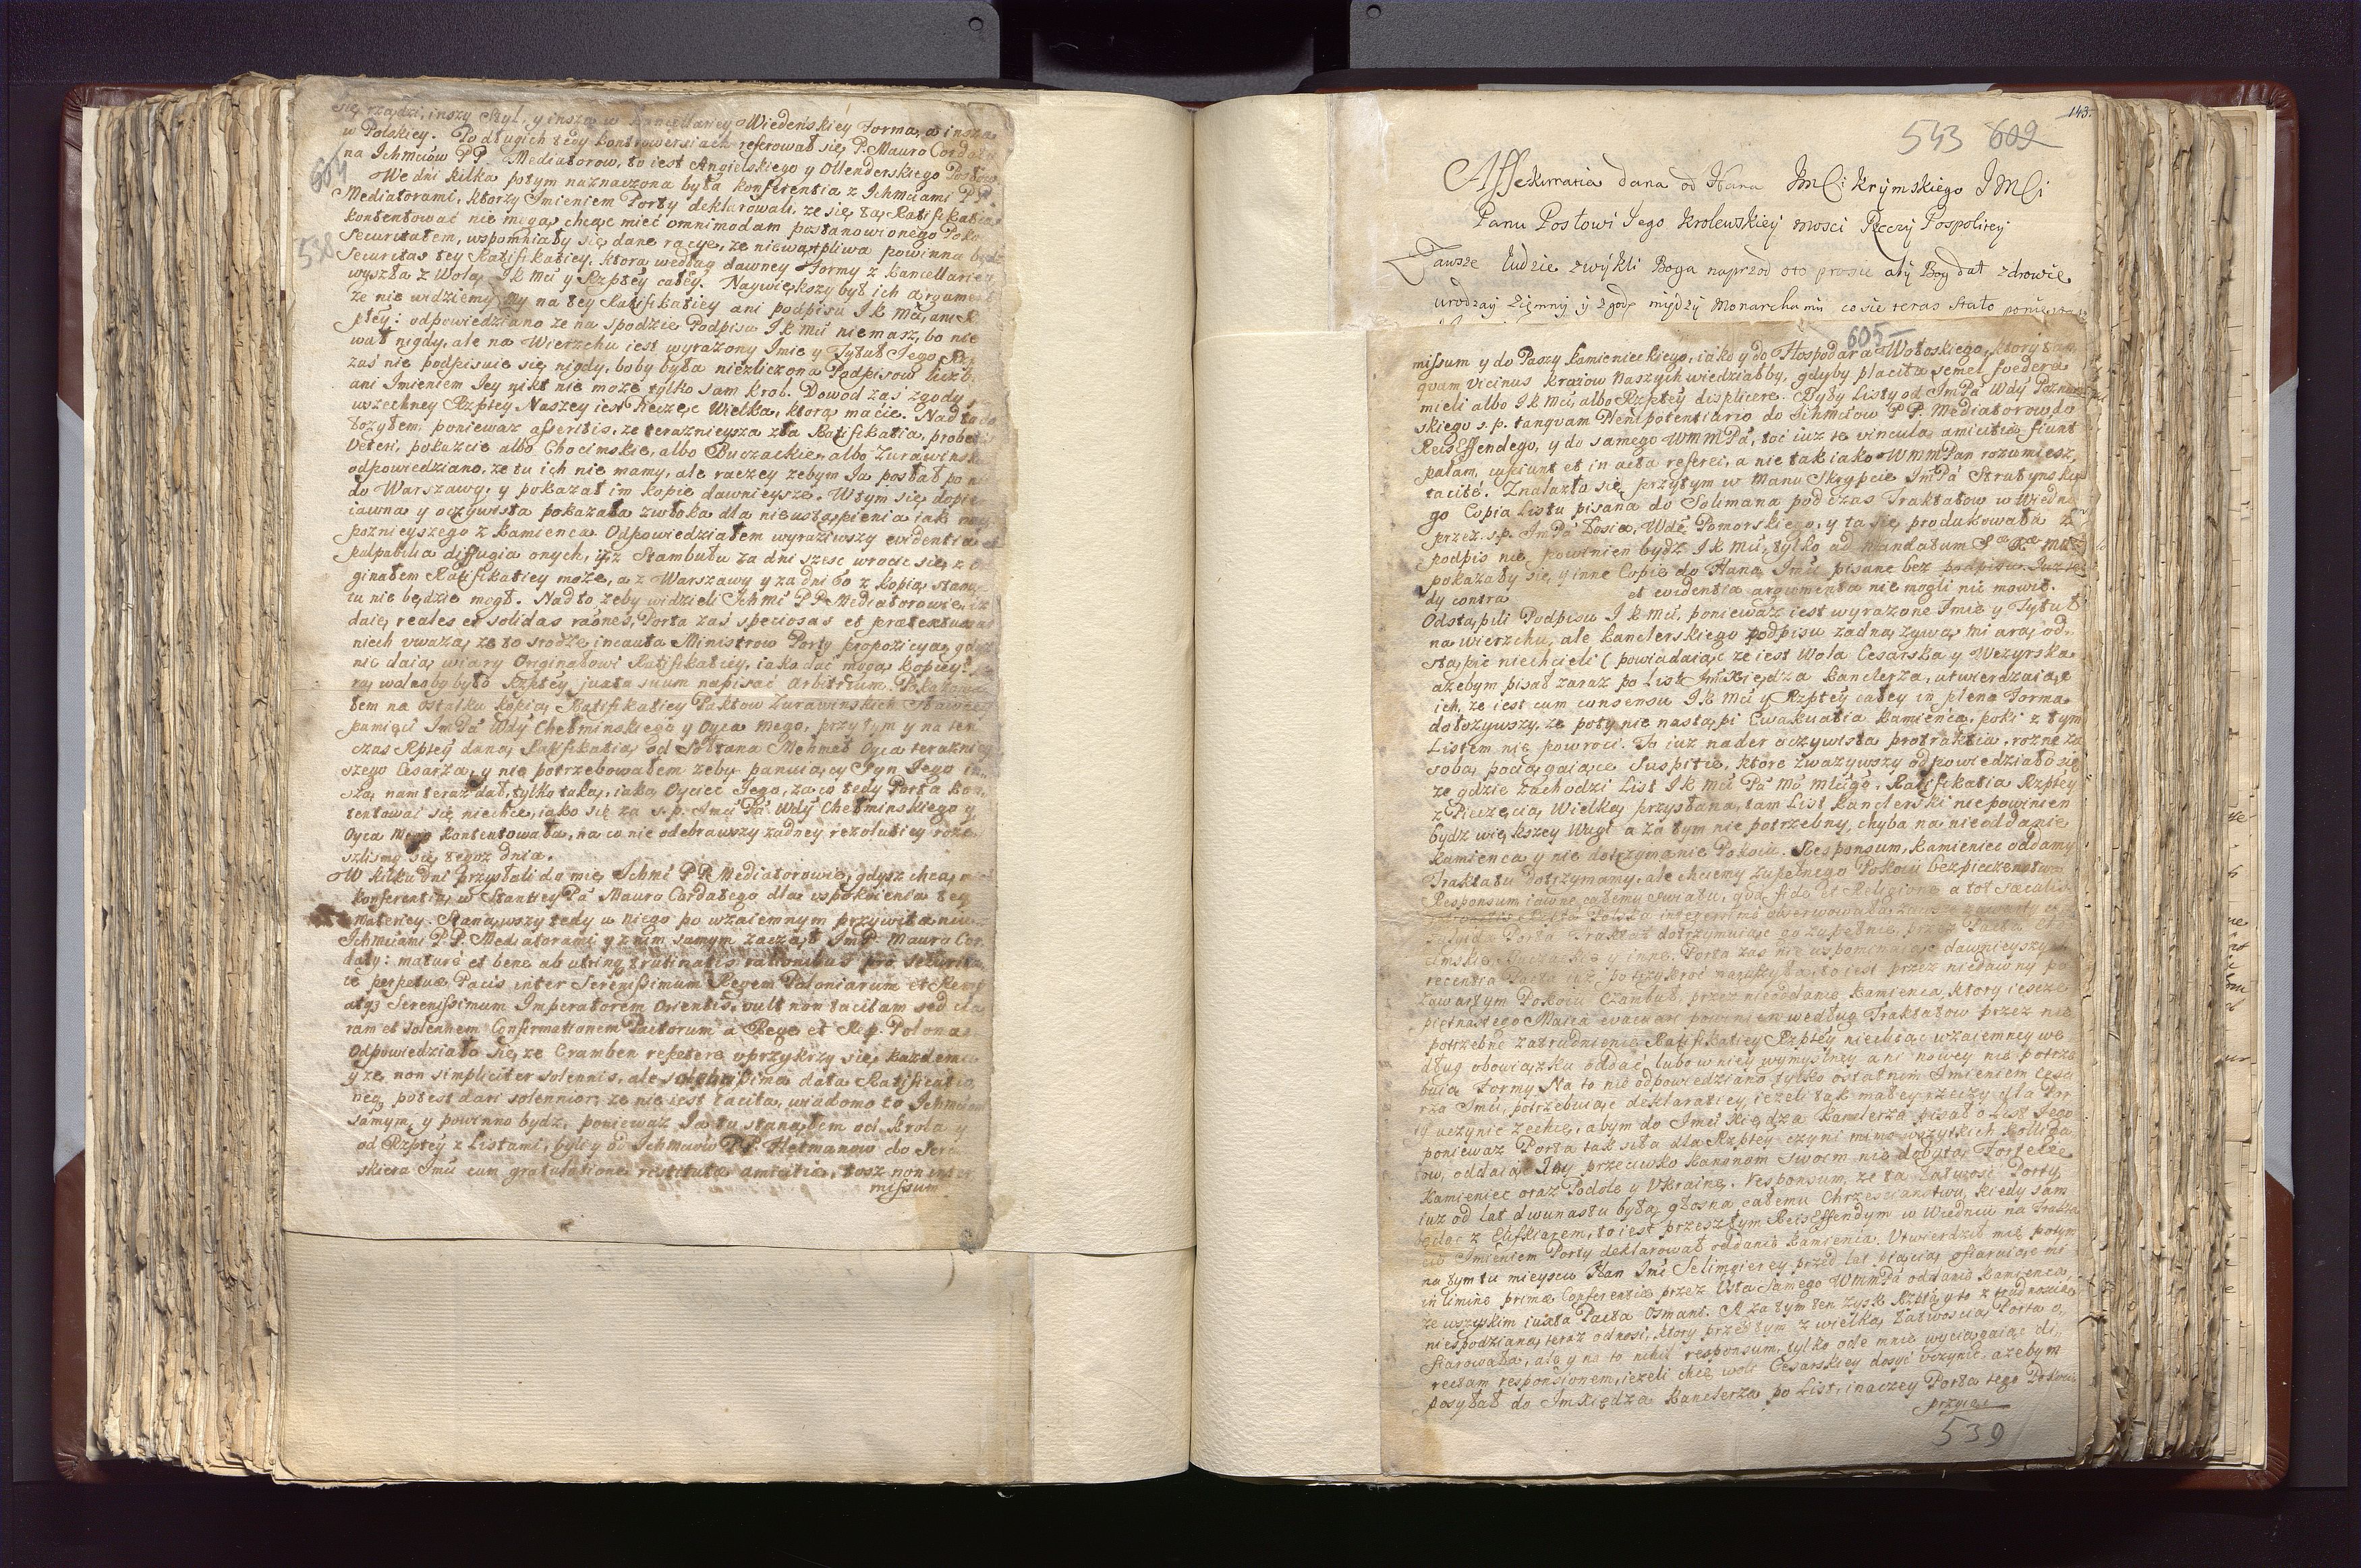 się rządzi, inszy Styl, y insza w kancellariey Wiedeńskiey Forma, a insza
w Polskiey. Po długich tedy kontrowersiach referował się P. Mauro Cordato
na Ichmciów PP. Mediatorow, to iest Angielskiego y Ollenderskiego Posłow
604
We dni kilka potym naznaczona była konferentia z Ichmciami PP.
Mediatorami, ktorzy Imieniem Porty deklarowali, ze się tą Ratifikatią
kontentować nie mogą, chcąc mieć omnimodam postanowionego Poko
538
Securitatem, wspomniały się dane racye, ze niewątpliwa powinna bydz
Securitas tey Ratifikatiey, ktora według dawney Formy z kancellariey
wyszła z Wolą, I k Mci y Rzptey całey. Naywiększy był ich argument
ze nie widziemy my na tey Ratifikatiey ani podpisu I k Mci, ani R
ptey: odpowiedziano ze na spodzie Podpisu I k Mci niemasz, bo nie
wał nigdy, ale na Wierzchu iest wyrazony Imie y Tytuł Jego
zaś nie podpisuie się nigdy, boby była niezliczona Podpisow liczb
ani Imieniem Iey nikt nie moze tylko sam krol. Dowod zas zgody
wszechney Rzptey Naszey iest Pieczęc Wielka, ktorą macie. Nad to
łozyłem, poniewaz asseritis, ze teraznieysza zła Ratifikatia, probetis
Veteri, pokazcie albo Chocimskie, albo Buczackie, albo Zurawinskie
odpowiedziano, ze tu ich nie mamy, ale raczey zebym Ja posłał po n
do Warszawy, y pokazał im kopie dawnieysze. W tym się dopie
iawna y oczywista pokazała zwłoka dla nieustąpienia iak nay
poznieyszego z kamienca. Odpowiedziałem wyraziwszy evidentia et
palpabilia diffugia onych, iz z Stambułu za dni szesc wrocic się z
ginałem Ratifikatiey moze, a z Warszawy y za dni 60 z kopią stanąc
tu nie będzie mogł. Nadto zeby widzieli Ichmci PP Mediatorowie, iz
daię reales et solidas raões, Porta zas speciosas et prætextuosas
niech uwazą, ze to srodze incauta Ministrow Porty propozicya, gdyz
nie daią wiary Originałowi Ratifikatiey, iako dać mogą kopiey?
rą, wolnoby było Rzptey juxta suum napisać arbitrium. Pokazowa
łem na ostatku kopią Ratifikatiey Paktow Zurawinskich sławney
pamięci Im Pa Wdy Chełminskiego y Oyca mego, przy tym y na ten
czas Rptey daną Ratifikatią od Sołtana Mehmet Oyca terazniey
szego Cesarza, y nie potrzebowałem zeby panuiący Syn Jego in
szą nam teraz dał, tylko taką, iaką Oyciec Jego, za co tedy Porta kon
tentować się niechce, iako się za s. p. Imci Pa Wdy Chełminskiego y
Oyca mego kontentowała, na co nie odebrawszy zadney rezolutiey roze
szlismy się tegoz dnia.
W kilka dni przysłali do mię Ichmci PP. Mediatorowie, gdysz chcą mieć
konferentią w Stantiey Pa Mauro Cordatego dla uspokoienia tey
materiey. Stanąwszy tedy u niego po wzaiemnym przywitaniu
Ichmciami PP. Mediatorami y z nim samym zaczął Im P. Mauro Cor
daty: mature et bene ab utrinq trutinatis rationibus pro securita
te perpetuæ Pacis inter Serenissimum Regem Poloniarum et Remp
atq3 Serenissimum Imperatorem Orientis, vult non tacitam sed cla
ram et solennem Confirmationem Pactorum a Rege et Rep. Polona
Odpowiedziało się, ze Cramben repetere uprzykrzy się kazdemu
y ze non simpliciter solennis, ale solennissima data Ratificatio,
neq potest dari solennior, ze nie iest tacita, wiadomo to Ichmciom
samym, y powinno bydz, poniewaz Ja tu stanąłem od krola y
od Rzptey z Listami, były y od Ichmciow PP. Hetmanow do Sera
skiera Imci cum gratulatione restitutæ amicitiæ, tosz non inter
missum
143.
543 609
Assekuratia dana od Hana Jm[Ci] krymskiego J M[Ci]
Panu Posłowi Jego krolewskiey mosci Rzeczy Pospolitey
Zawsze ludzie zwykli Boga naprzod oto prosic aby Bog dał zdrowie
urodzay ziemny y zgodę między Monarchami co sie teras stało poniewasz
605
missum y do Paszy kamienieckiego, iako y do Hospodara Wołoskiego, ktory tan
quam Vicinus kraiow Naszych wiedziałby, gdyby placita semel foedera
mieli albo I k Mci, albo Rzptey displicere. Były Listy od Im Pa Wdy Poznan
skiego s. p. tanquam Plenipotentiario do Ichmciow PP. Mediatorow, do
Reis Effendego, y do samego WMMPa, toć iuz te vincula amicitiæ fiunt
palam, cupiunt et in acta referri, a nie tak iako WMMPan rozumiesz,
tacitè. Znalazła się przytym w Manu Skrypcie Im Pa Strutynskie
go Copia Listu pisana do Solimana podczas Traktatow w Wiedniu
przez s. p. Im Pa Łosia, Wdę Pomorskiego, y ta się produkowała z
podpis nie powinien bydz I k Mci, tylko ad Mandatum
pokazały się y inne Copie do Hana Imci pisane bez podpisu. Iuz te
dy contra et evidentia argumenta nie mogli nic mowić.
Odstąpili Podpisu I k Mci, poniewaz iest wyrazone Imie y Tytuł
na wierzchu, ale kanclerskiego podpisu zadną zywą miarą od
stąpic niechcieli (powiadaiąc ze iest Wola Cesarska y Wezyrska
azebym pisał zaraz po List Im Xiędza kanclerza, utwierdzaiąc
ich, ze iest cum consensu I k Mci y Rzptey całey in plena Forma
dołozywszy, ze poty nie nastąpi Ewakuatia kamienca, poki z tym
Listem nie powroci. To iuz nader oczywista protraktia, rozne za
sobą pociągaiące Suspitie, ktore zwazywszy odpowiedziało się
ze gdzie zachodzi List I k Mci Pa Mo Mługo, Ratifikatia Rzptey
z Pieczęcią Wielką przysłana, tam List kanclerski nie powinien
bydz większey Wagi a za tym nie potrzebny, chyba na nie oddanie
kamienca y nie dotrzymanie Pokoiu. Responsum, kamieniec oddamy
Traktatu dotrzymamy, ale chcemy zupełnego Pokoiu bezpieczenstwa.
Responsum, iawne całemu swiatu, qua fide et Religione a tot sæculis
Pacta Polska integerrime obserwowała, zawsze zawarty z
Porta Traktat dotrzymuiąc go zupełnie, przez Pacta
imskie, Buczackie y inne. Porta zas nie wspominaiąc dawnieyszych
recentia Pacta iuz po trzykroć naruszyła, to iest przez niedawny po
zawartym Pokoiu Czambuł, przez nieoddanie kamienca, ktory ieszcze
piętnastego Maia evacuari powinien według Traktatow przez nie
potrzebne zatrudnienie Ratifikatiey Rzptey niechcąc wzaiemney we
dług obowiązku oddać, lubo w niey wymyslney ani nowey nie potrze
buią Formy. Na to nic odpowiedziano, tylko ostatnim Imieniem Cesa
rza Imci, potrzebuiąc deklaratiey, iezeli tak małey rzeczy dla Por
ty uczynic zechcę, abym do Imci Xiędza kanclerza pisał o List Jego
poniewaz Porta tak siła dla Rzptey czyni mimo wszytkich kolliga
tow, oddaiąc Iey przeciwko kanonom swoim nie dobytą Fortecę
Kamieniec oraz Podole y Ukrainę. Responsum, ze ta łatwosć Porty
iuz od lat dwunastu była głosna całemu Chrzescianstwu, kiedy sam
będąc z Elifkiarem, to iest przeszłym Reis Effendym w Wiedniu na Trakta
cie Imieniem Porty deklarował oddanie kamienca. Utwierdził mię potym
na tym tu mieyscu Han Imci Selimgierey przed lat piącią, ofiaruiąc mi
in limine primæ Conferentiæ przez Usta Samego WMMPa oddanie kamienca,
ze wszytkim iuxta Pacta Osmani. A za tym ten zysk Rzpta y to z trudnoscią
niespodzianą teraz odnosi, ktory przed tym z wielką łatwoscią Porta o
fiarowała, ale y na to nihil responsum, tylko ode mnie wyciągaiąc di
rectam responsionem, iezeli chcę woli Cesarskiey dosyć uczynic, azebym
posyłał do Im Xiędza kanclerza po List, inaczey Porta tego Pokoiu
przyiąc
539